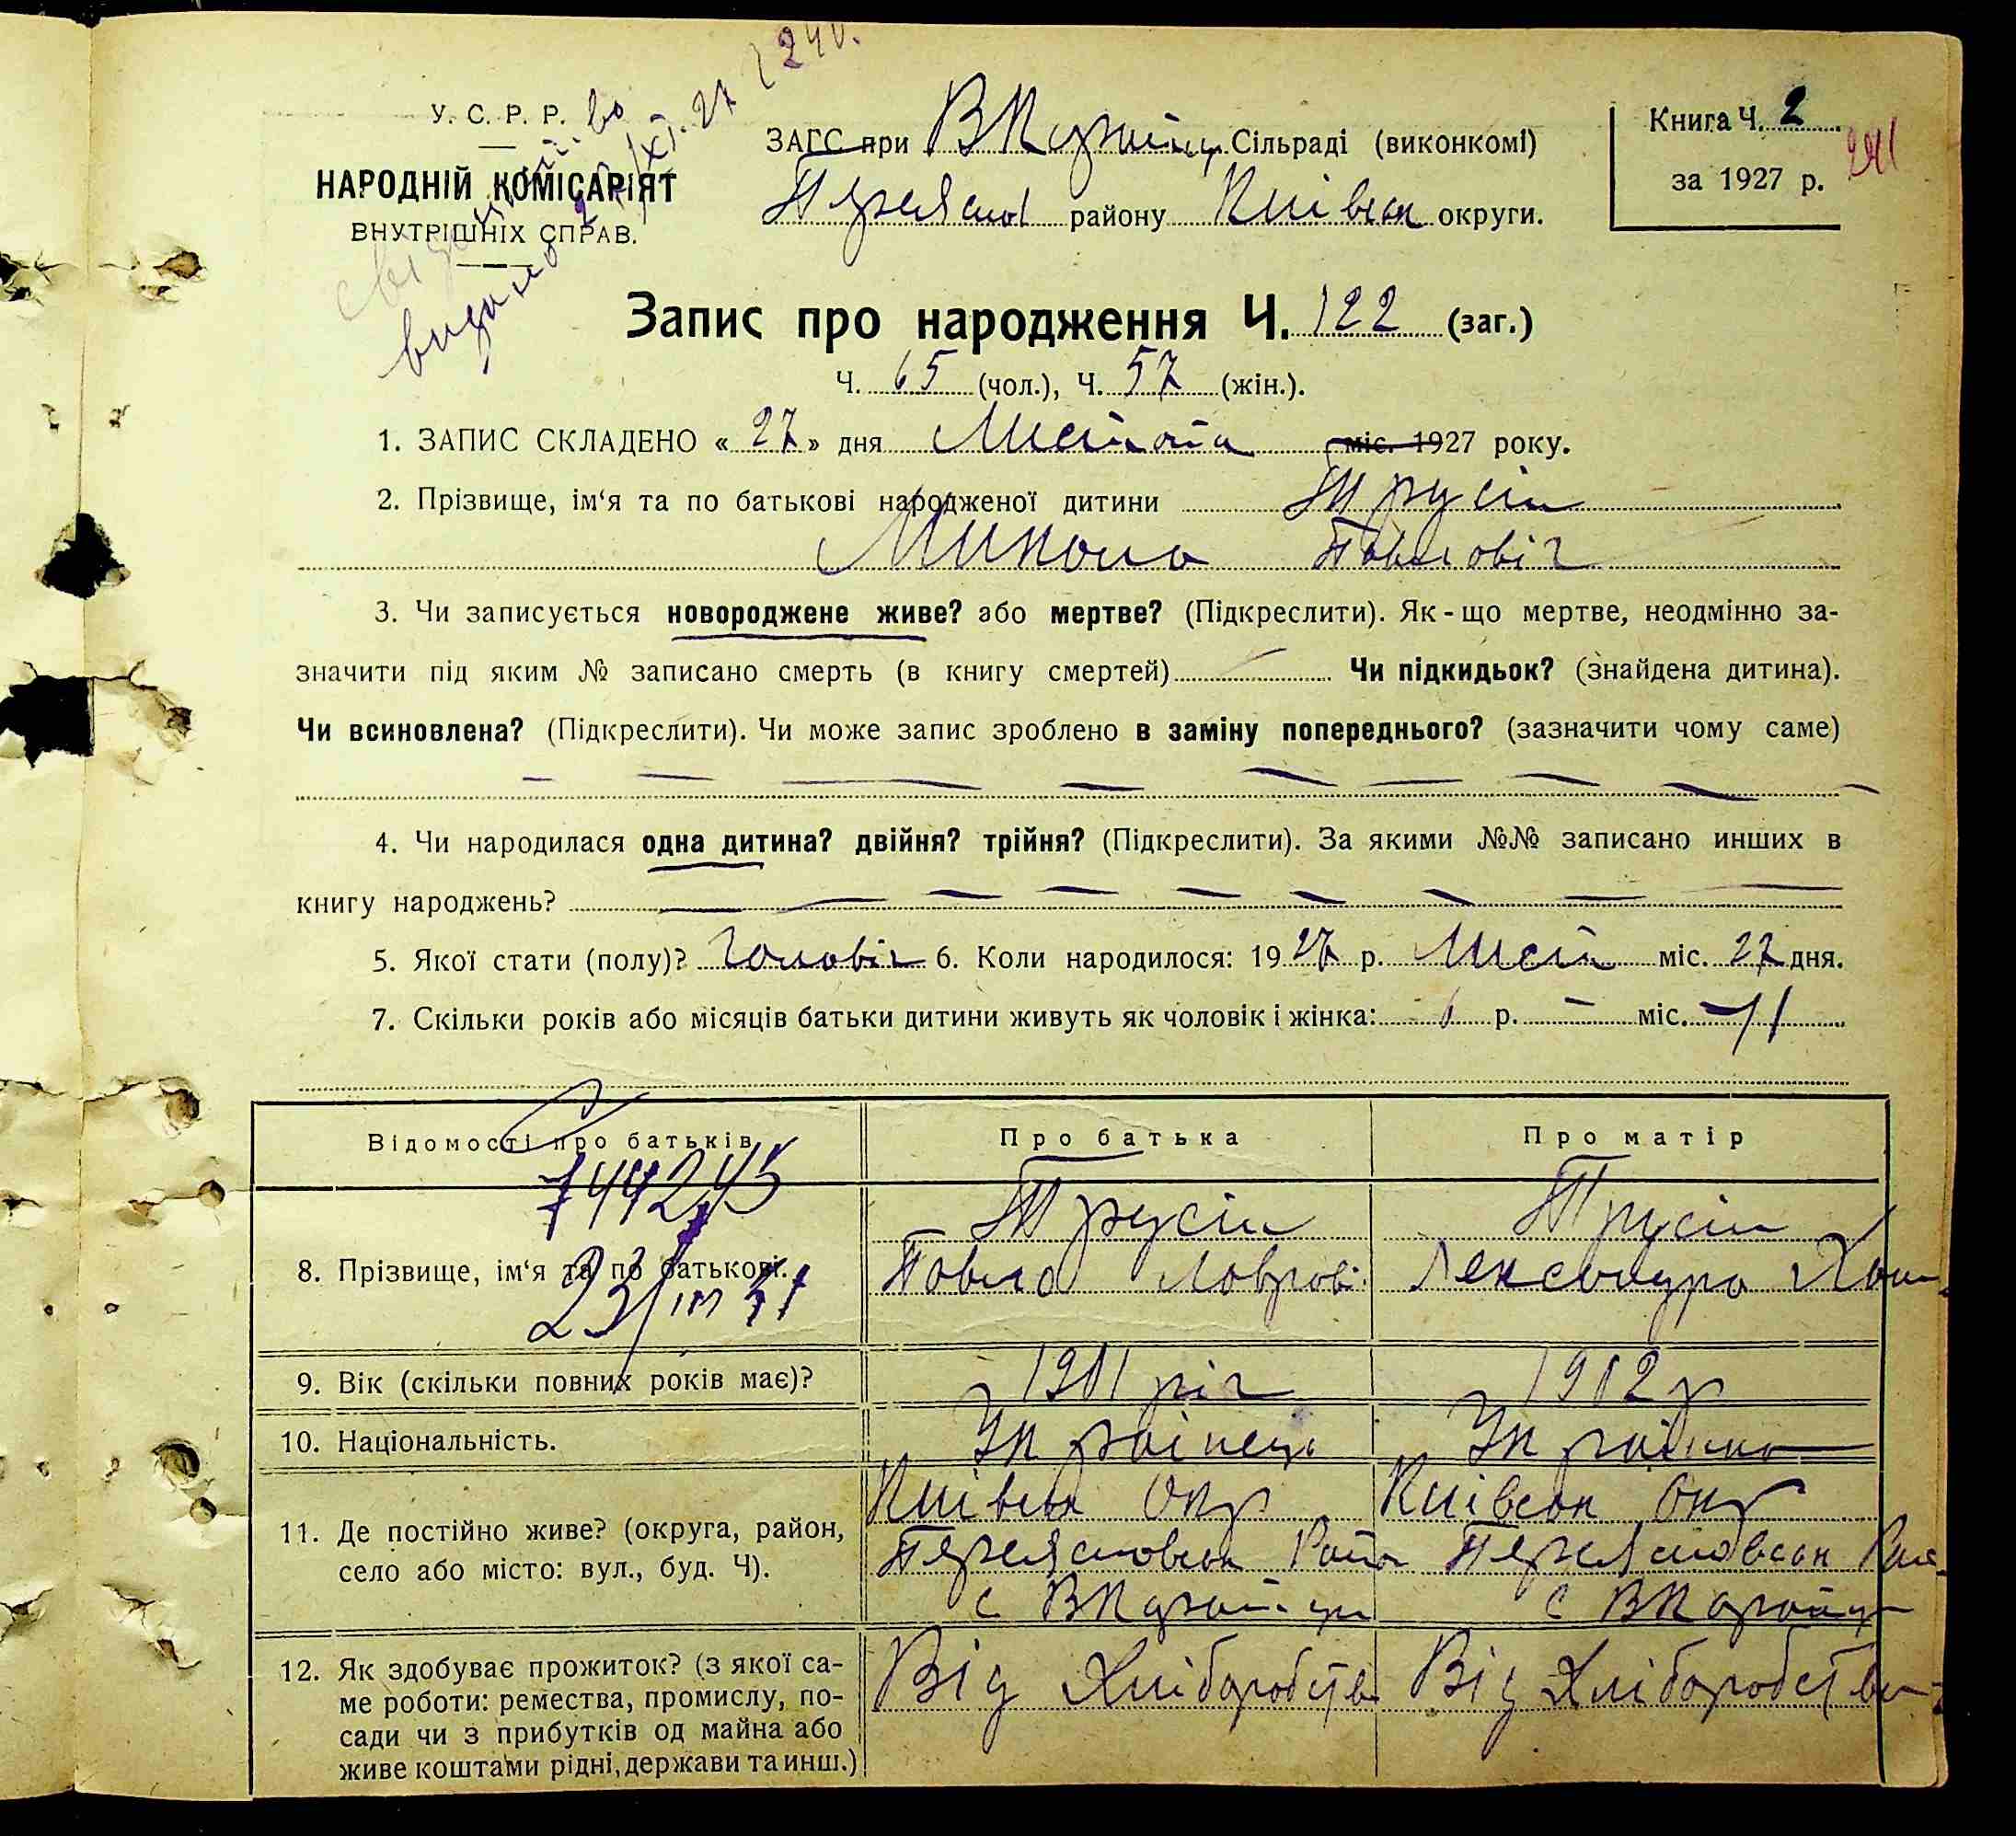 240.
У. С. Р. Р.
НАРОДНІЙ КОМІСАРІЯТ
ВНУТРІШНІХ СПРАВ.
видано
ЗАГС при ВКаратул Сільраді (виконкомі)
Переяслов району Київськ округи.
Книга Ч. 2
за 1927 р.
241
Запис про народження Ч. 122 (заг.)
Ч. 65 (чол.), Ч. 57 (жін.).
1. ЗАПИС СКЛАДЕНО « 27 » дня Листопа міс. 1927 року.
2. Прізвище, ім‘я та по батькові народженої дитини Трусін
Микола Павлович
3. Чи записується новороджене живе? або мертве? (Підкреслити). Як-що мертве, неодмінно за-
значити під яким № записано смерть (в книгу смертей) Чи підкидьок? (знайдена дитина).
Чи всиновлена? (Підкреслити). Чи може запис зроблено в заміну попереднього? (зазначити чому саме)
4. Чи народилася одна дитина? двійня? трійня? (Підкреслити). За якими №№ записано инших в
книгу народжень?
5. Якої стати (полу)? Чоловіч 6. Коли народилося: 1927 р. Лист міс. 27 дня.
7. Скільки років або місяців батьки дитини живуть як чоловік і жінка: р. — міс.
Відомості про батьків Про батька Про матір
8. Прізвище, ім‘я та по батькові. Трусін Трусін
Павло Лавров Лександра
9. Вік (скільки повних років має)? 1901 річ 1902 р
10. Національність. Українець Українка
11. Де постійно живе? (округа, район,
село або місто: вул., буд. Ч).
Київськ Окр Київськ Окр
Переясловськ Район Переясловськ
12. Як здобуває прожиток? (з якої са-
ме роботи: ремества, промислу, по-
сади чи з прибутків од майна або
живе коштами рідні, держави та инш.)
Від Хліборобств Від Хліборобства